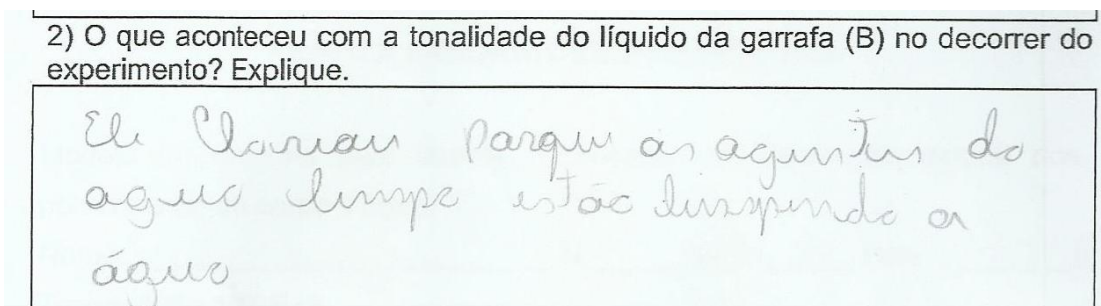 2) O que aconteceu com a tonalidade do líquido da garrafa (B) no decorrer do
experimento? Explique.
Ele Clariau Parque as agentes da
agua limpa estão limpando a
água